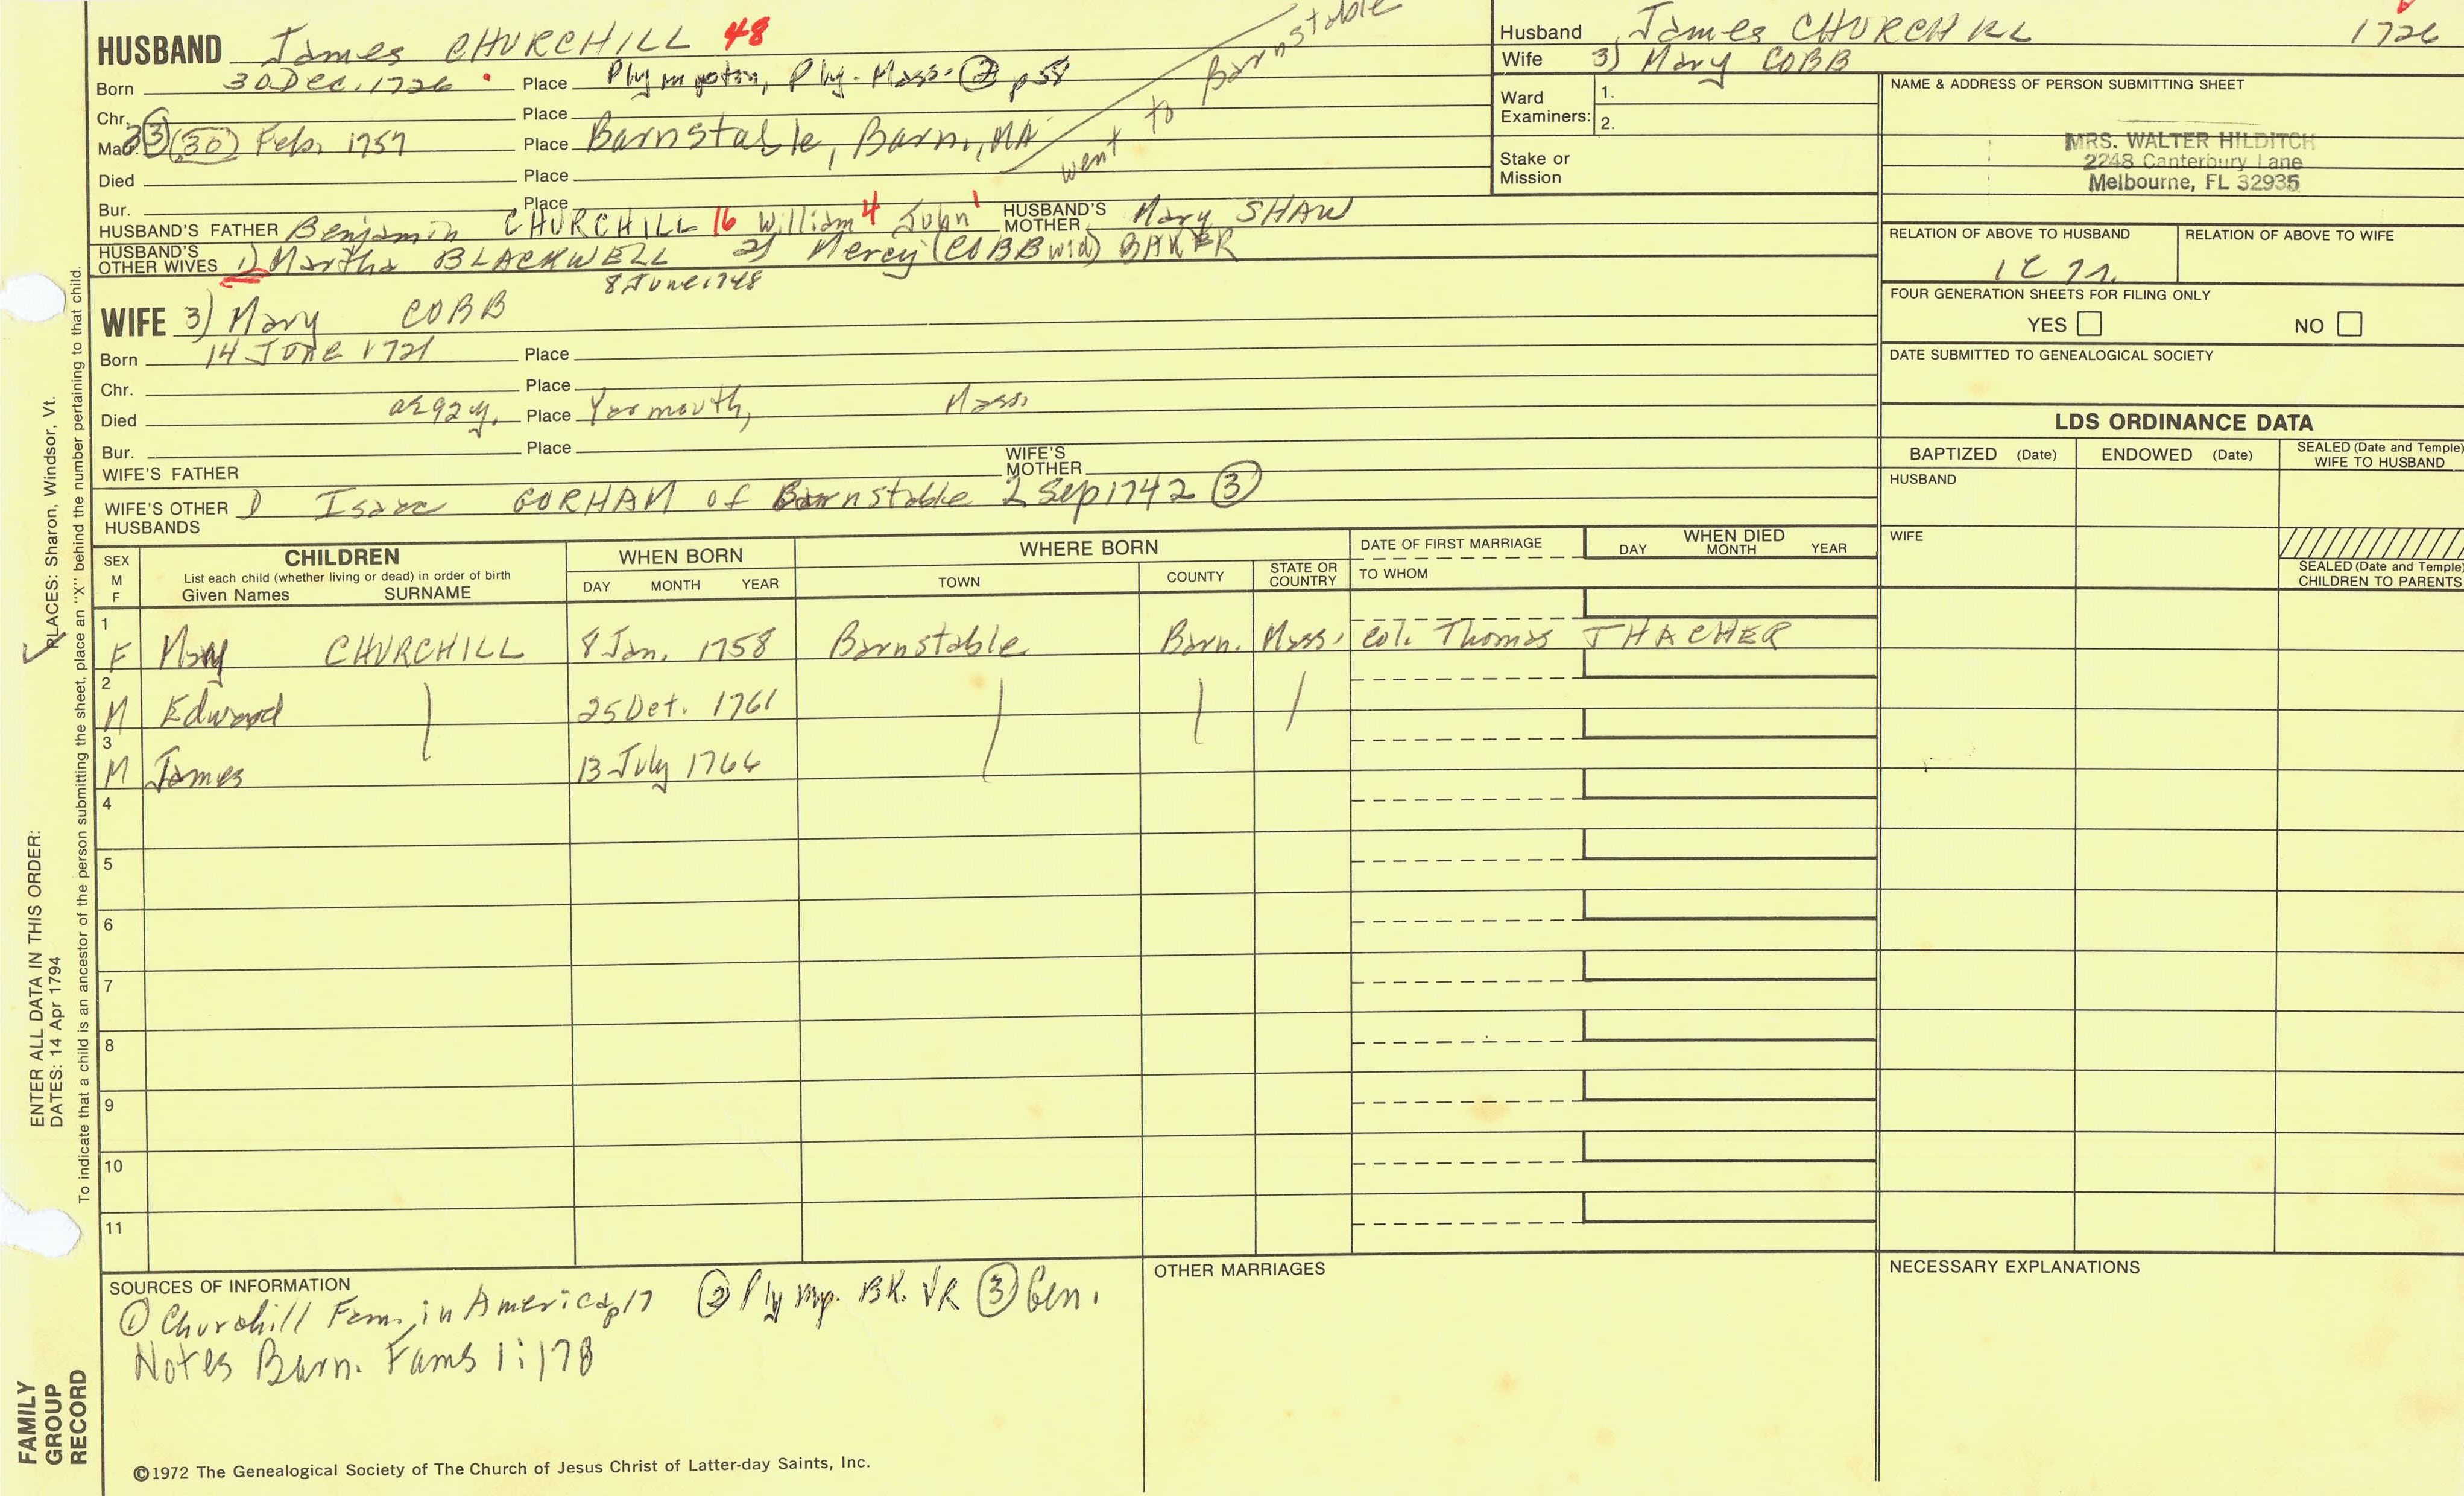 HUSBAND James CHURCHILL 48
Born 30 Dec. 1726 Place Plympton, Ply. Mass. ② p58
went to Barnstable
Chr. Place
Mar. ③ (30) Feb. 1757 Place Barnstable, Barn., MA
Died Place
Bur. Place
HUSBAND'S FATHER Benjamin CHURCHILL 16 William 4 John 1 HUSBAND'S MOTHER Mary SHAW
HUSBAND'S OTHER WIVES 1) Martha BLACKWELL 2) Mercy (COBB wid) BAKER
8 June 1748
WIFE 3) Mary COBB
Born 14 June 1721 Place
Chr. Place
Died ae 92 y. Place Yarmouth, Mass.
Bur. Place
WIFE'S FATHER WIFE'S MOTHER
WIFE'S OTHER HUSBANDS 1) Isaac GORHAM of Barnstable 2 Sep 1742 ③
Husband James CHURCHILL 1726
Wife 3) Mary COBB
Ward Examiners: 1.
2.
Stake or Mission
NAME & ADDRESS OF PERSON SUBMITTING SHEET
MRS. WALTER HILDITCH
2248 Canterbury Lane
Melbourne, FL 32935
RELATION OF ABOVE TO HUSBAND RELATION OF ABOVE TO WIFE
FOUR GENERATION SHEETS FOR FILING ONLY
YES NO
DATE SUBMITTED TO GENEALOGICAL SOCIETY
LDS ORDINANCE DATA
BAPTIZED (Date) ENDOWED (Date) SEALED (Date and Temple) WIFE TO HUSBAND
HUSBAND
WIFE
SEALED (Date and Temple) CHILDREN TO PARENTS
SEX M F CHILDREN WHEN BORN WHERE BORN DATE OF FIRST MARRIAGE WHEN DIED
List each child (whether living or dead) in order of birth
Given Names SURNAME DAY MONTH YEAR TOWN COUNTY STATE OR COUNTRY TO WHOM DAY MONTH YEAR
1 F Mary CHURCHILL 8 Jan. 1758 Barnstable Barn. Mass. Col. Thomas THACHER
2 M Edward 25 Oct. 1761
3 M James 13 July 1766
4
5
6
7
8
9
10
11
SOURCES OF INFORMATION
① Churchill Fam. in America p17 ② Plymp. BK. VR ③ Gen.
Notes Barn. Fams 1:178
OTHER MARRIAGES
NECESSARY EXPLANATIONS
©1972 The Genealogical Society of The Church of Jesus Christ of Latter-day Saints, Inc.
FAMILY GROUP RECORD
ENTER ALL DATA IN THIS ORDER:
DATES: 14 Apr 1794
PLACES: Sharon, Windsor, Vt.
To indicate that a child is an ancestor of the person submitting the sheet, place an "X" behind the number pertaining to that child.